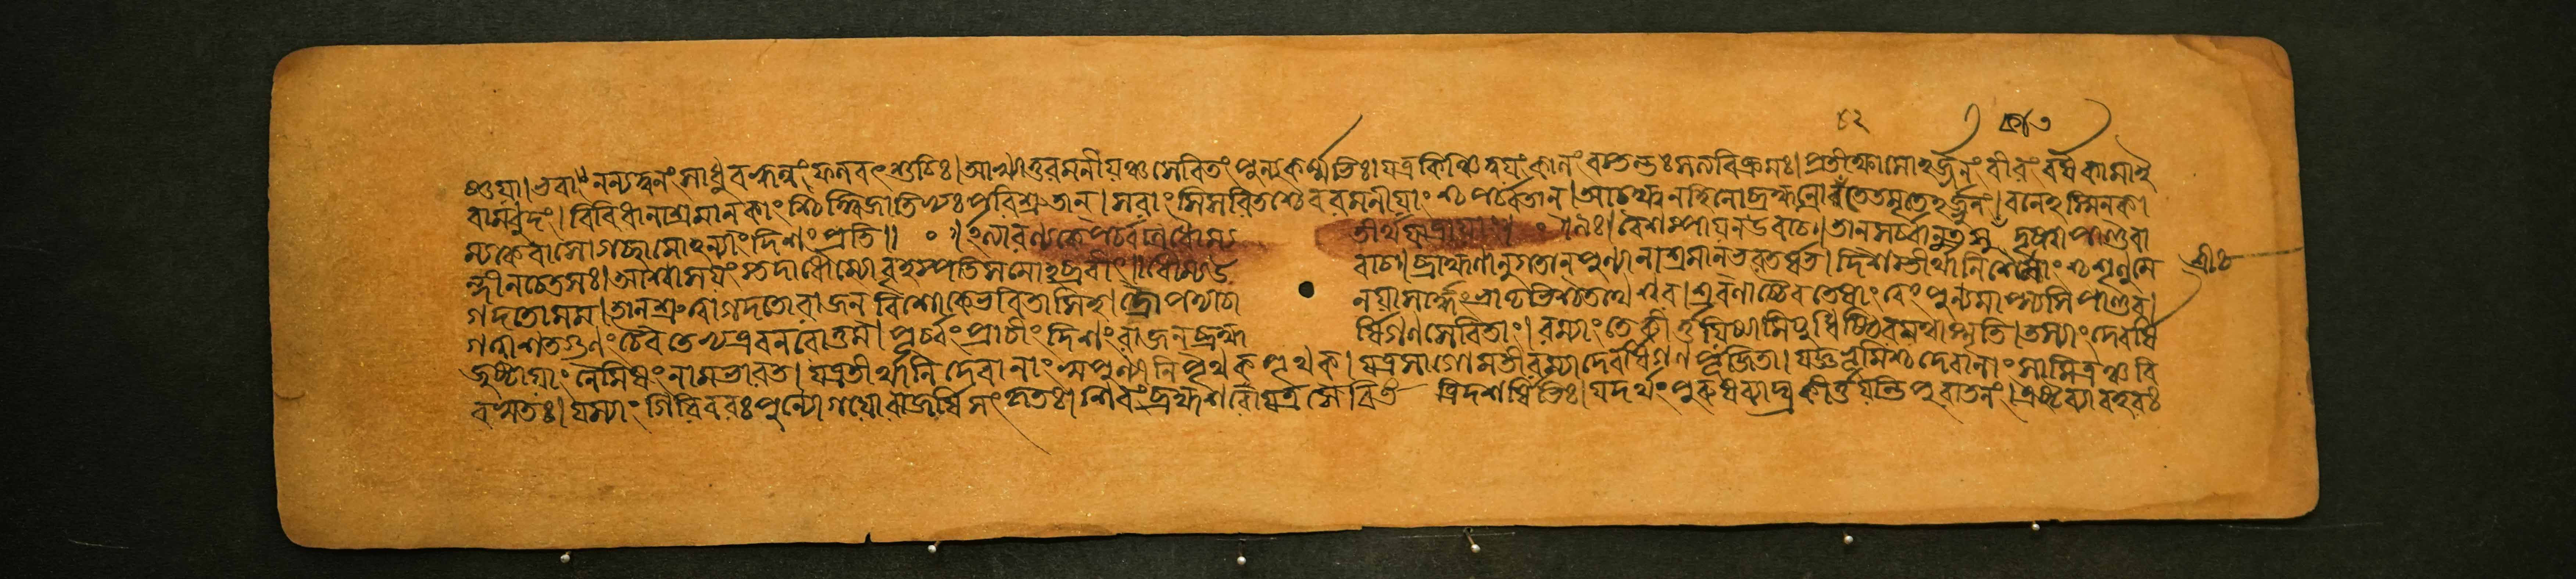 সাধু বহ্বন্নং ফলবৎ শুচিঃ। আখ্যাতু রমনীয়ঞ্চ সেবিতং পুন্যকর্ম্মভিঃ। যত্র কিঞ্চিদ্বয়ং কালং বসন্তঃ সত্যবিক্রমঃ। প্রতীক্ষামোঽর্জ্জুনং বীরং বর্ষকামা ই
বাম্বুদং। বিবিধানাশ্রমান কাংশ্চিদ্দ্বিজাতিভ্যঃ পরিশ্রুতান। সরাংসি সরিতশ্চৈব রমনীয়াংশ্চ পর্ব্বতান। আচক্ষ্ব নহি নো ব্রহ্মন্রোচতে তমৃতেঽর্জ্জুনং। বনেঽস্মিন কা
ম্যকে বাসো গচ্ছামোঽন্যাং দিশং প্রতি॥ ০ ॥ ইত্যারণ্যকে পর্ব্বণি ধৌম্য তীর্থযাত্রায়াং॥ বৈশম্পায়ন উবাচ॥ তান সর্ব্বানুৎসু দৃষ্ট্বা পাণ্ডবা
ন্দীনচেতসঃ। আশ্বাসয়ং স্তদা ধৌম্যো বৃহস্পতিসমোঽব্রবীৎ॥ ধৌম্য উ বাচ॥ ব্রাহ্মণানুমতান পুণ্যানাশ্রমান ভরতর্ষভ। দিশস্তীর্থানি শৈলাংশ্চ শৃণু মে
গদতো মম। তান শ্রুত্বা গদতো রাজন বিশোকো ভবিতাসি হ। দ্রৌপদ্যা চা নয়া সার্দ্ধং ভ্রাতৃভিশ্চ শ্রবণাচ্চৈব তেষাং বৈ পুন্যমাপ্স্যসি পাণ্ডব।
গত্বা শতগুণং চৈব তেভ্য এব নরোত্তম। পূর্ব্বং প্রাচীং দিশং রাজন ব্রহ্মা র্ষিগণসেবিতাং। রম্যাং তে কীর্ত্তয়িষ্যামি যুধিষ্ঠির যথাস্মৃতি। তস্যাং দেবর্ষি
জুষ্টায়াং নৈমিষং নাম ভারত। যত্র তীর্থানি দেবানাং সুপুণ্যানি পৃথক পৃথক। যত্র সা গোমতী রম্যা দেবর্ষিগণপূজিতা। যজ্ঞভূমিশ্চ দেবানাং সামিত্রঞ্চ বি
বস্বতঃ। যস্যাং গিরিবরঃ পুন্যো গয়ো রাজর্ষিসংমতঃ। শিবং ব্রহ্মশরো যত্র সেবিতং ত্রিদশর্ষিভিঃ। যদর্থং পুরুষব্যাঘ্র কীর্ত্তয়ন্তি পুরাতনং। এষ্টব্যা বহবঃ